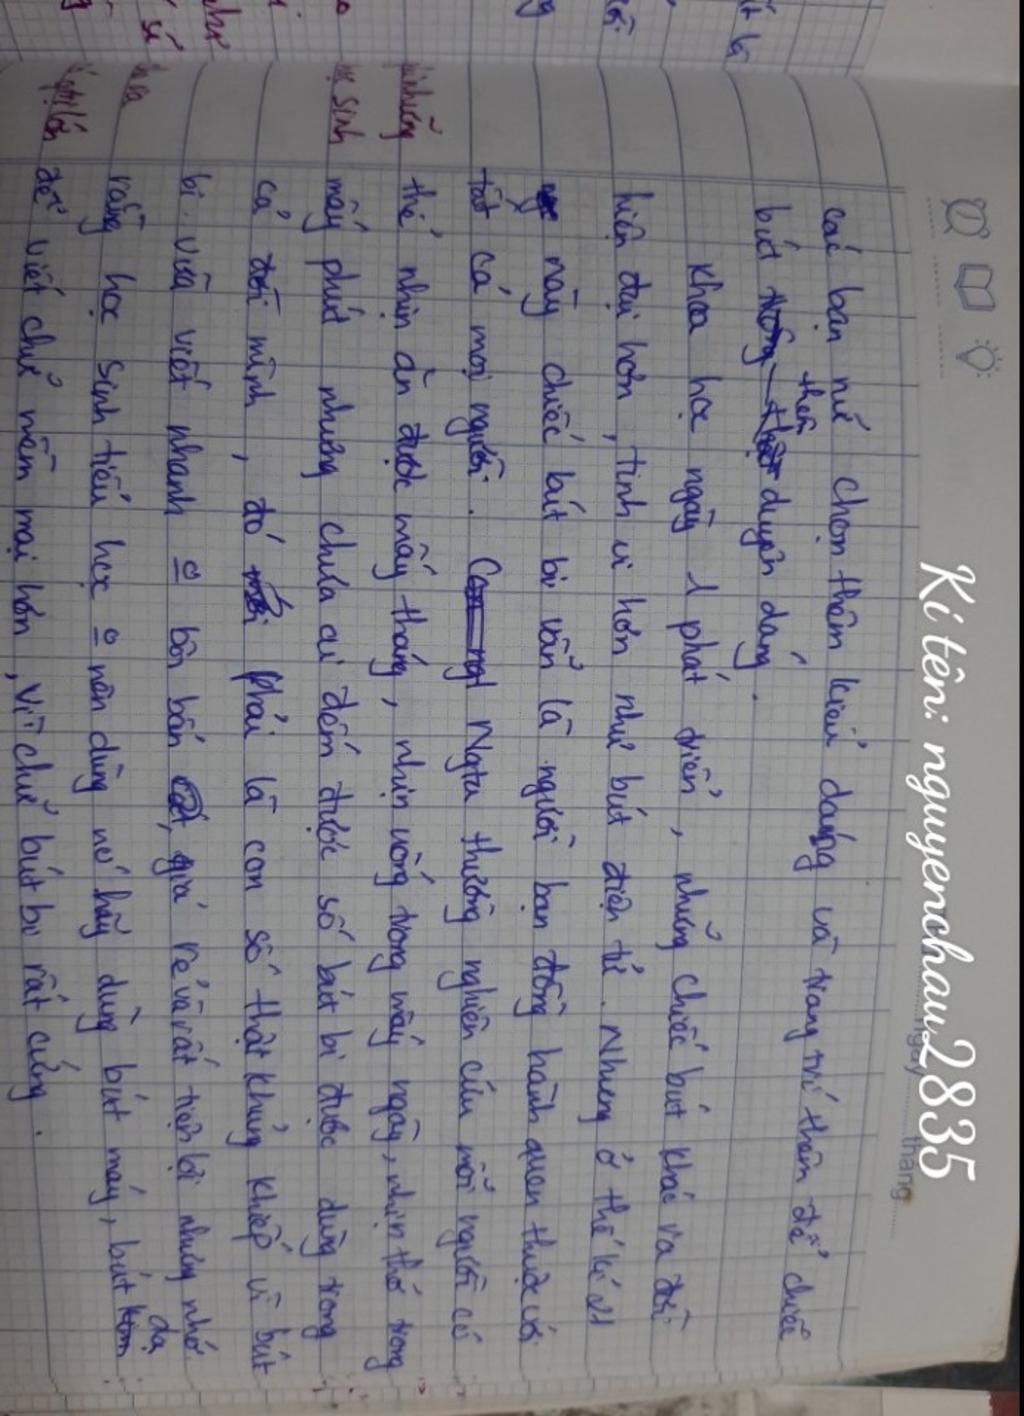 Kí tên: nguyenchau2835
ngày thàng
các bạn nữ chọn thêm kiểu dáng và trang trí thêm để chiếc
bút thêm duyên dáng.
Khoa học ngày 1 phát triển, những chiếc bút khác ra đời
hiện đại hơn, tinh vi hơn như bút điện tử. Nhưng ở thế kỉ 21
này chiếc bút bi vẫn là người bạn đồng hành quen thuộc với
tất cả mọi người. Ngta thường nghiên cứu mỗi người có
thể nhịn ăn được mấy tháng, nhịn uống trong mấy ngày, nhịn thở trong
mấy phút nhưng chưa ai đếm được số bút bi được dùng trong
cả đời mình, đó phải là con số thật khủng khiếp vì bút
bi. vừa viết nhanh bán giá rẻ và rất tiện lợi nhưng nhớ
rằng học sinh tiểu học nên dùng nó hãy dùng bút máy, bút dạ
để viết chữ mềm mại hơn, vì chữ bút bi rất cứng.
những
sinh